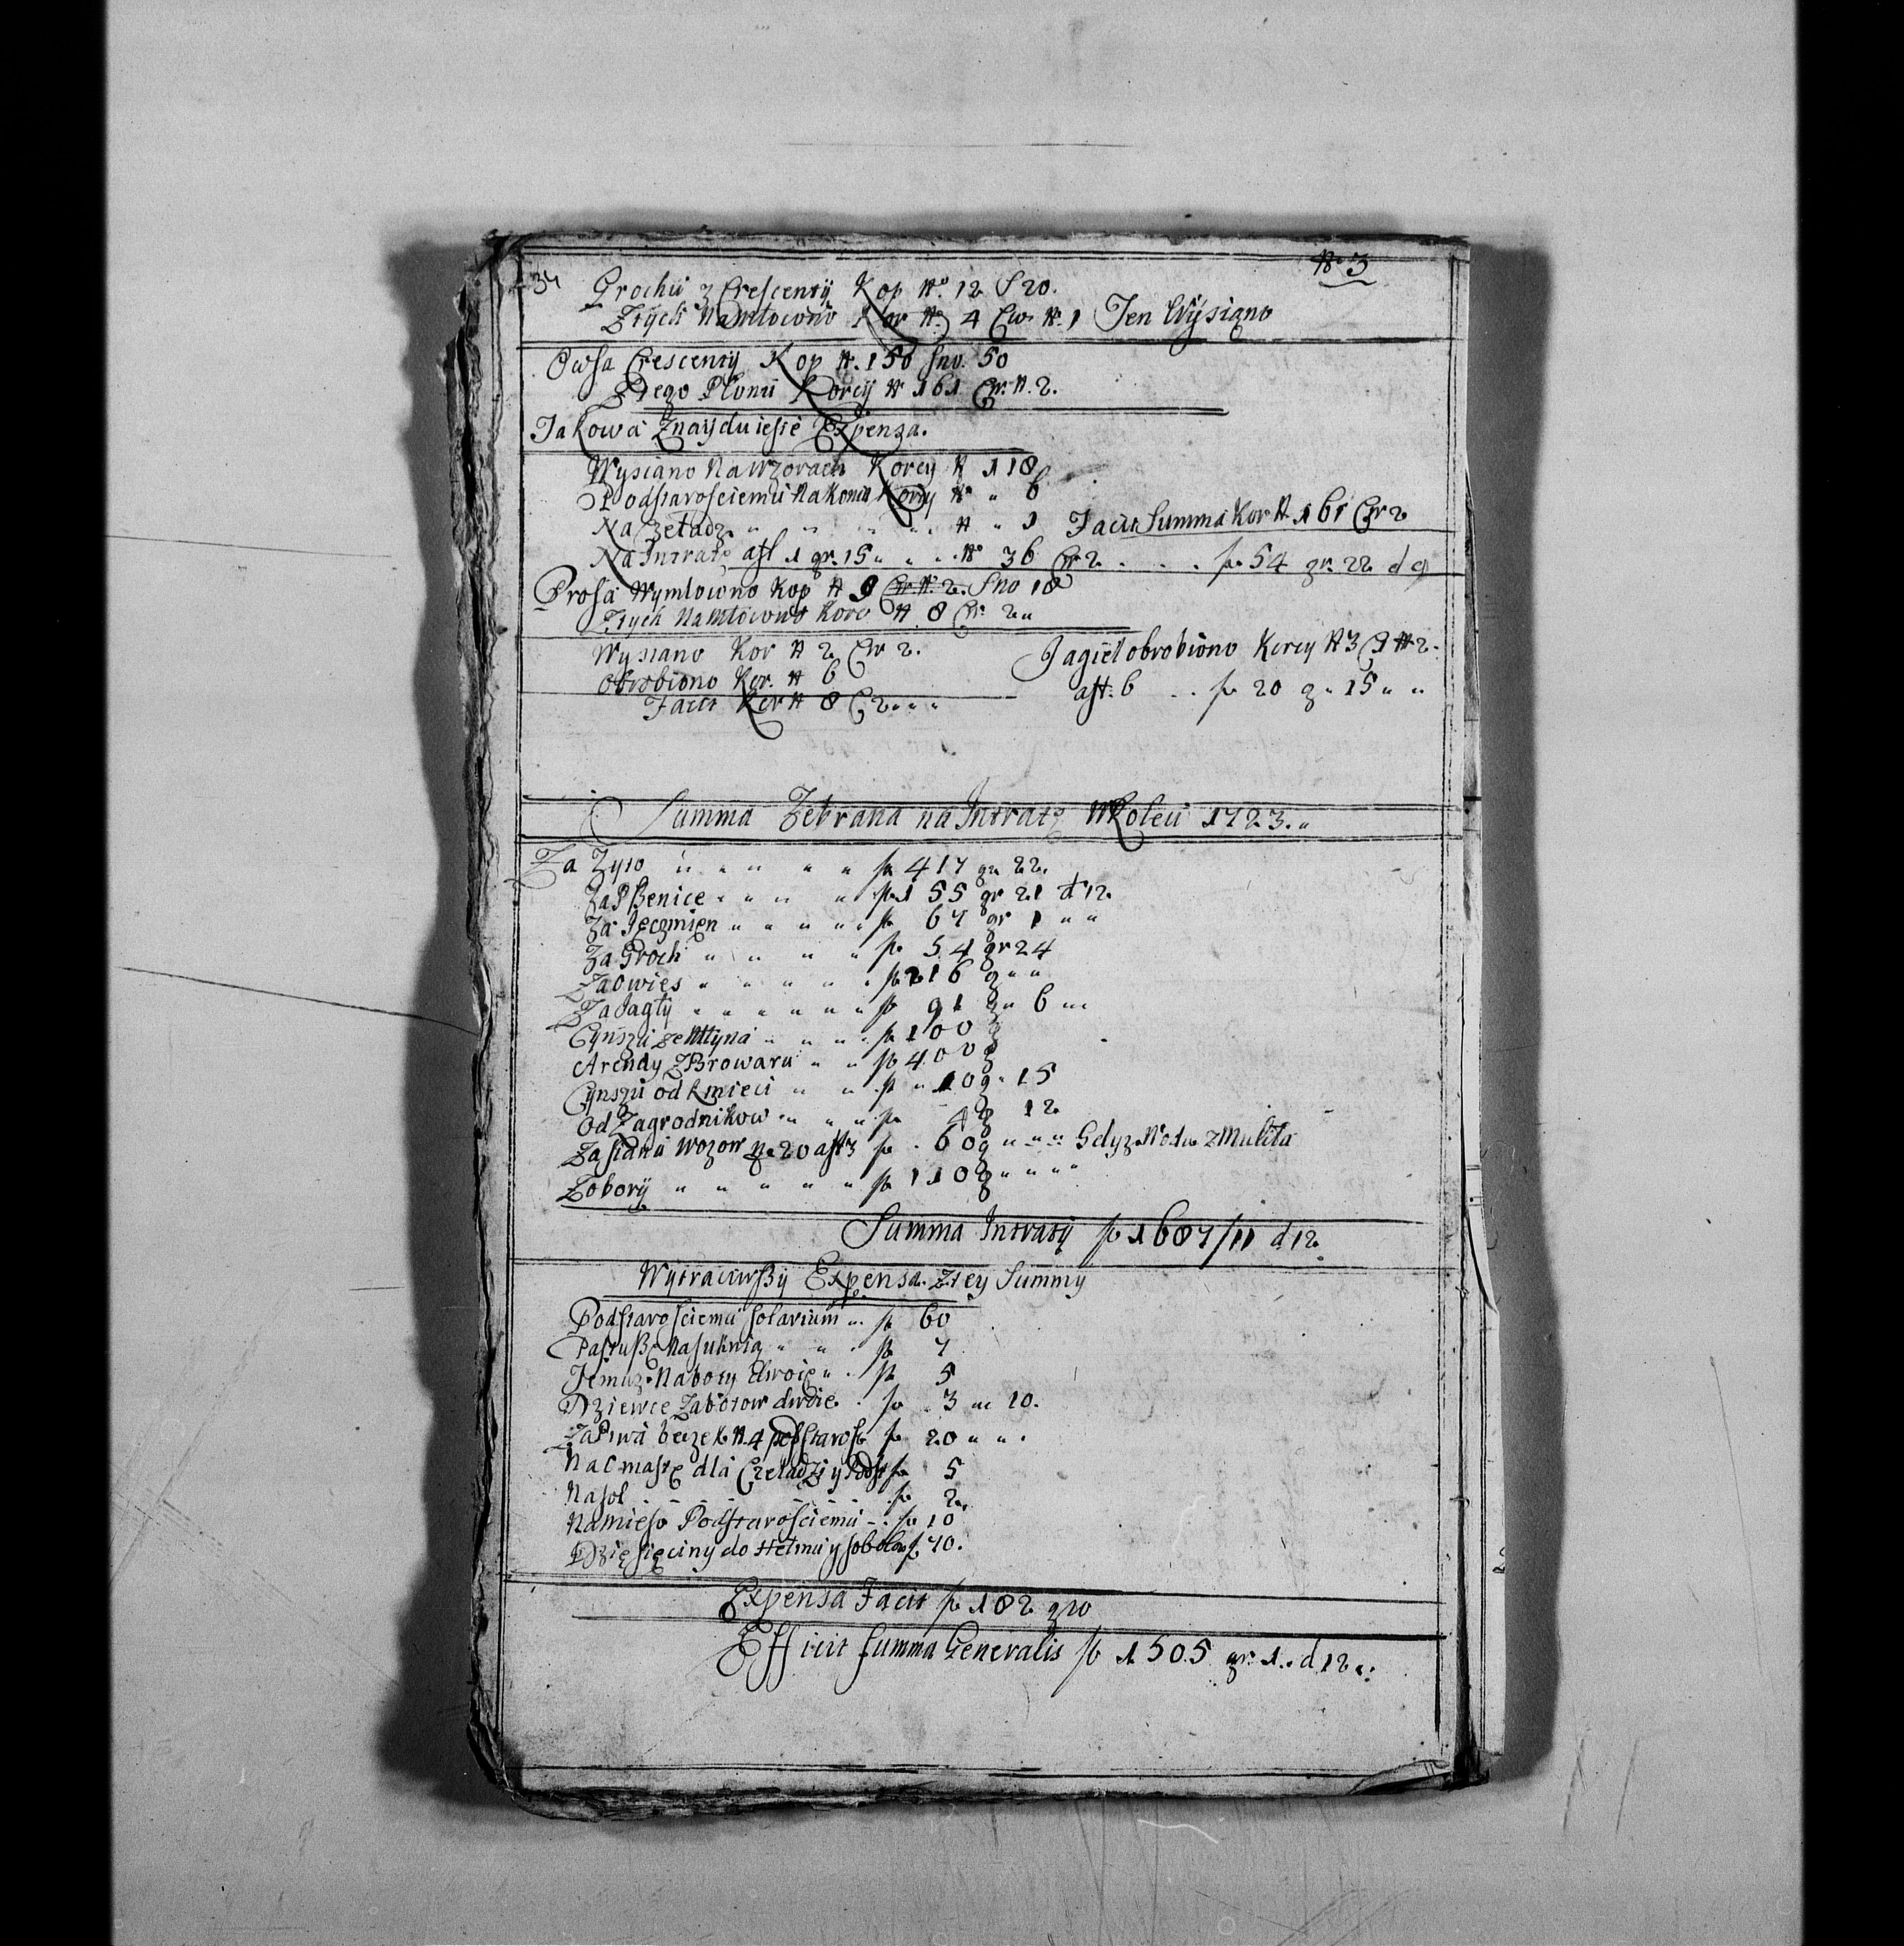 34
No 3
Grochu z Crescenty Kop No. 12 S 20.
Ztych Namłocono Kor No. 4 Cw. N. 1 Ten Wysiano
Owsa Crescenty Kop N. 150 Sno. 50
Ztego Plonu Korcy N 161 Cwr. N. 2.
Takowa Znayduiesie Expensa.
Wysiano Nawzorach Korcy N 118
Podstarosciemu Nakonia Korcy N " 6
Na Zeladz " " " " N " 1 Facit Summa Kor N. 161 Cwr 2
Na Intratę afl 1 gr. 15 " " " No 36 Cwr 2 . . . fl. 54 gr. 22 d 9
Prosa Wymłocono Kop N 9 Cwr N. 2. Sno 18
Ztych Namłocono Korc N. 8 Cwr. 2 "
Wysiano Kor N 2 Cwr 2.
Jagieł obrobiono Korcy N 3 C N 2.
Obrobiono Kor. N 6
afl. 6 . . fl 20 g " 15 " "
Facit Kor N 8 C 2 " " "
Summa Zebrana na Intratę WRoku 1723. "
Za Zyto " " " " " fl 417 gr 22.
Za Pszenice " " " " fl 155 gr 21 d 12.
Za Jęczmien " " " " " fl 67 gr 1 " "
Za Groch " " " " fl 54 gr 24
Za Owies " " " " " fl 216 g " "
Za Jagły " " " " " " fl 91 g " 6 " "
Cynszu ze Młyna " " " fl 100 g
Arendy z Browaru " " fl 400 g
Cynszu od Kmieci " " fl " 10 g " 15
Od Zagrodnikow " " " fl 4 g 12
Za siana wozow N. 20 afl 3 fl . 60 g " " " Gdyz Woda zMuliła
Z obory " " " " " fl 110 g " " "
Summa Intraty fl 1687/11 d 12
Wytraciwszy Expensa Ztey Summy
Podstarosciemu solarium " . fl 60
Pastuszę Nasuknią " " . fl 7
Temuz Naboty dwoie " . fl 5
Dziewce Zabotow dwoie . fl . 3 " 10.
Za Piwa beczek N. 4 podstarosc fl 20 " " .
Na Omastę dla Czeladzi y Podst fl 5
Na sol . - - - - - . fl 2.
Na mięso Podstarosciemu - . fl 10
Dziesięciny do Hełmu y Sobolow f. 70.
Expensa Facit fl 182 g 10
Efficit Summa Generalis fl 1505 gr. 1. d 12 .: